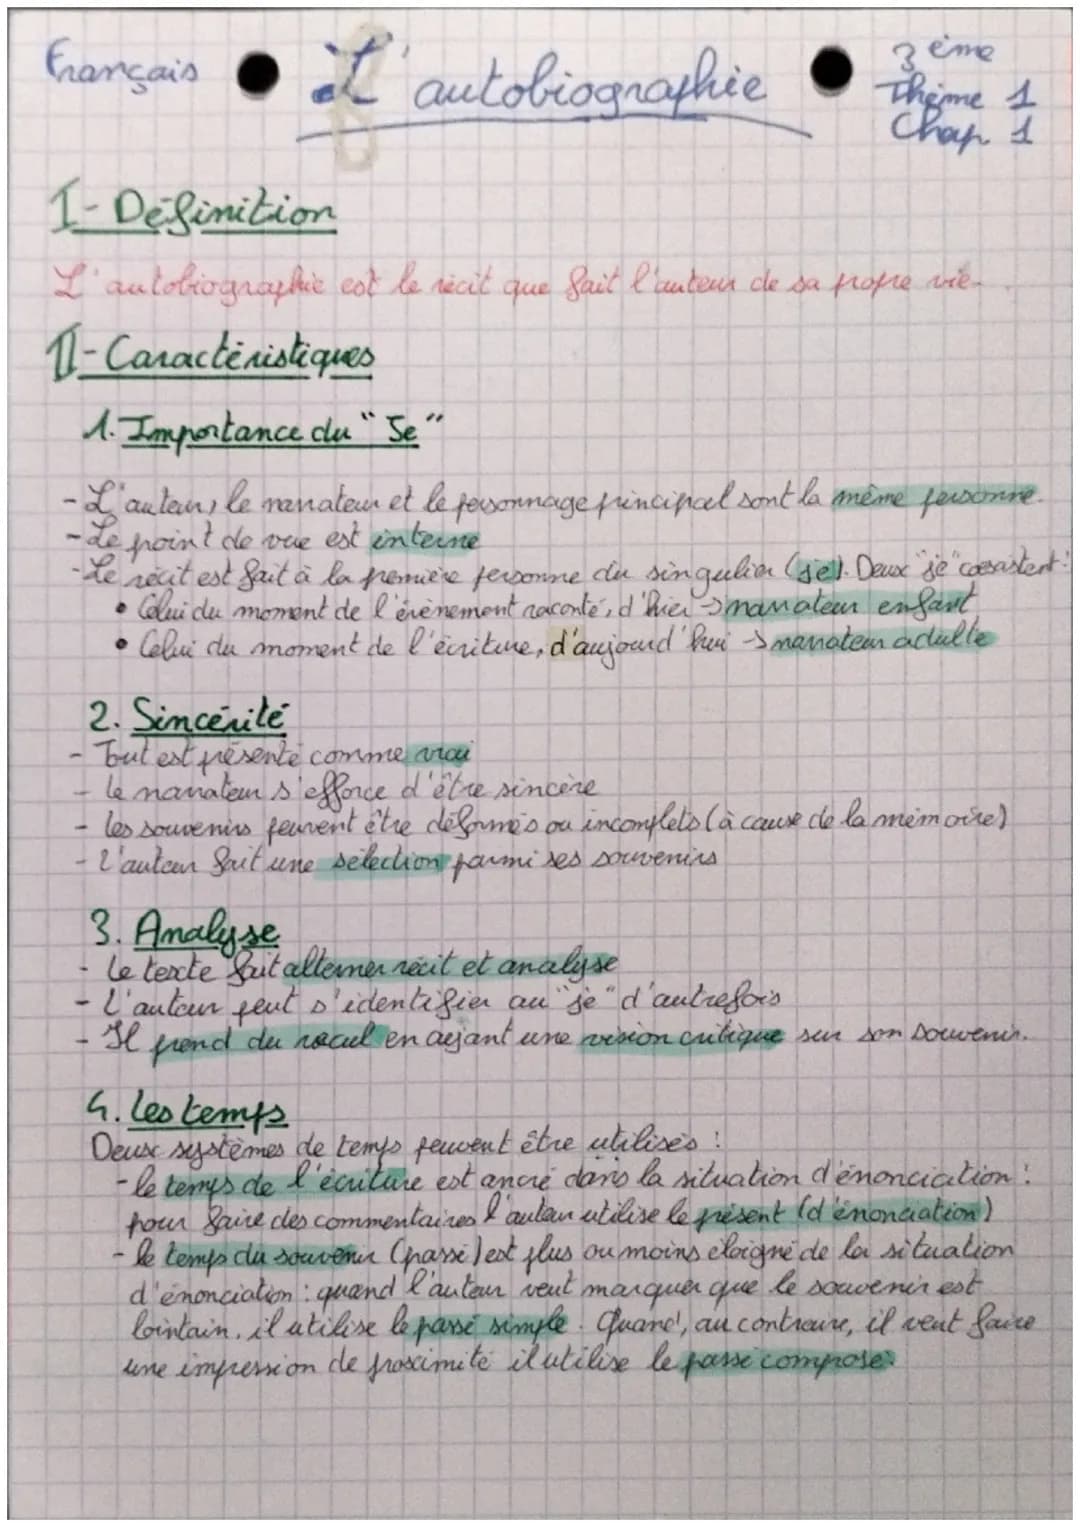 Français
L'autobiographie
3ème
Thème 1
Chap. 1
I- Définition
L'autobiographie est le récit que fait l'auteur de sa propre vie.
II- Caractéristiques
1. Importance du "Je"
- L'auteur, le narrateur et le personnage principal sont la même personne.
- Le point de vue est interne
- Le récit est fait à la première personne du singulier (je). Deux "je" coexistent :
• Celui du moment de l'évènement raconté, d'hier → narrateur enfant
• Celui du moment de l'écriture, d'aujourd'hui → narrateur adulte
2. Sincérité
- Tout est présenté comme vrai
- le narrateur s'efforce d'être sincère
- les souvenirs peuvent être déformés ou incomplets (à cause de la mémoire)
- l'auteur fait une sélection parmi ses souvenirs
3. Analyse
- le texte fait alterner récit et analyse
- L'auteur peut s'identifier au "je" d'autrefois
- Il prend du recul en ayant une vision critique sur son souvenir.
4. Les temps
Deux systèmes de temps peuvent être utilisés :
- le temps de l'écriture est ancré dans la situation d'énonciation :
pour faire des commentaires l'auteur utilise le présent (d'énonciation)
- le temps du souvenir (passé) est plus ou moins éloigné de la situation
d'énonciation : quand l'auteur veut marquer que le souvenir est
lointain, il utilise le passé simple. Quand, au contraire, il veut faire
une impression de proximité il utilise le passé composé.